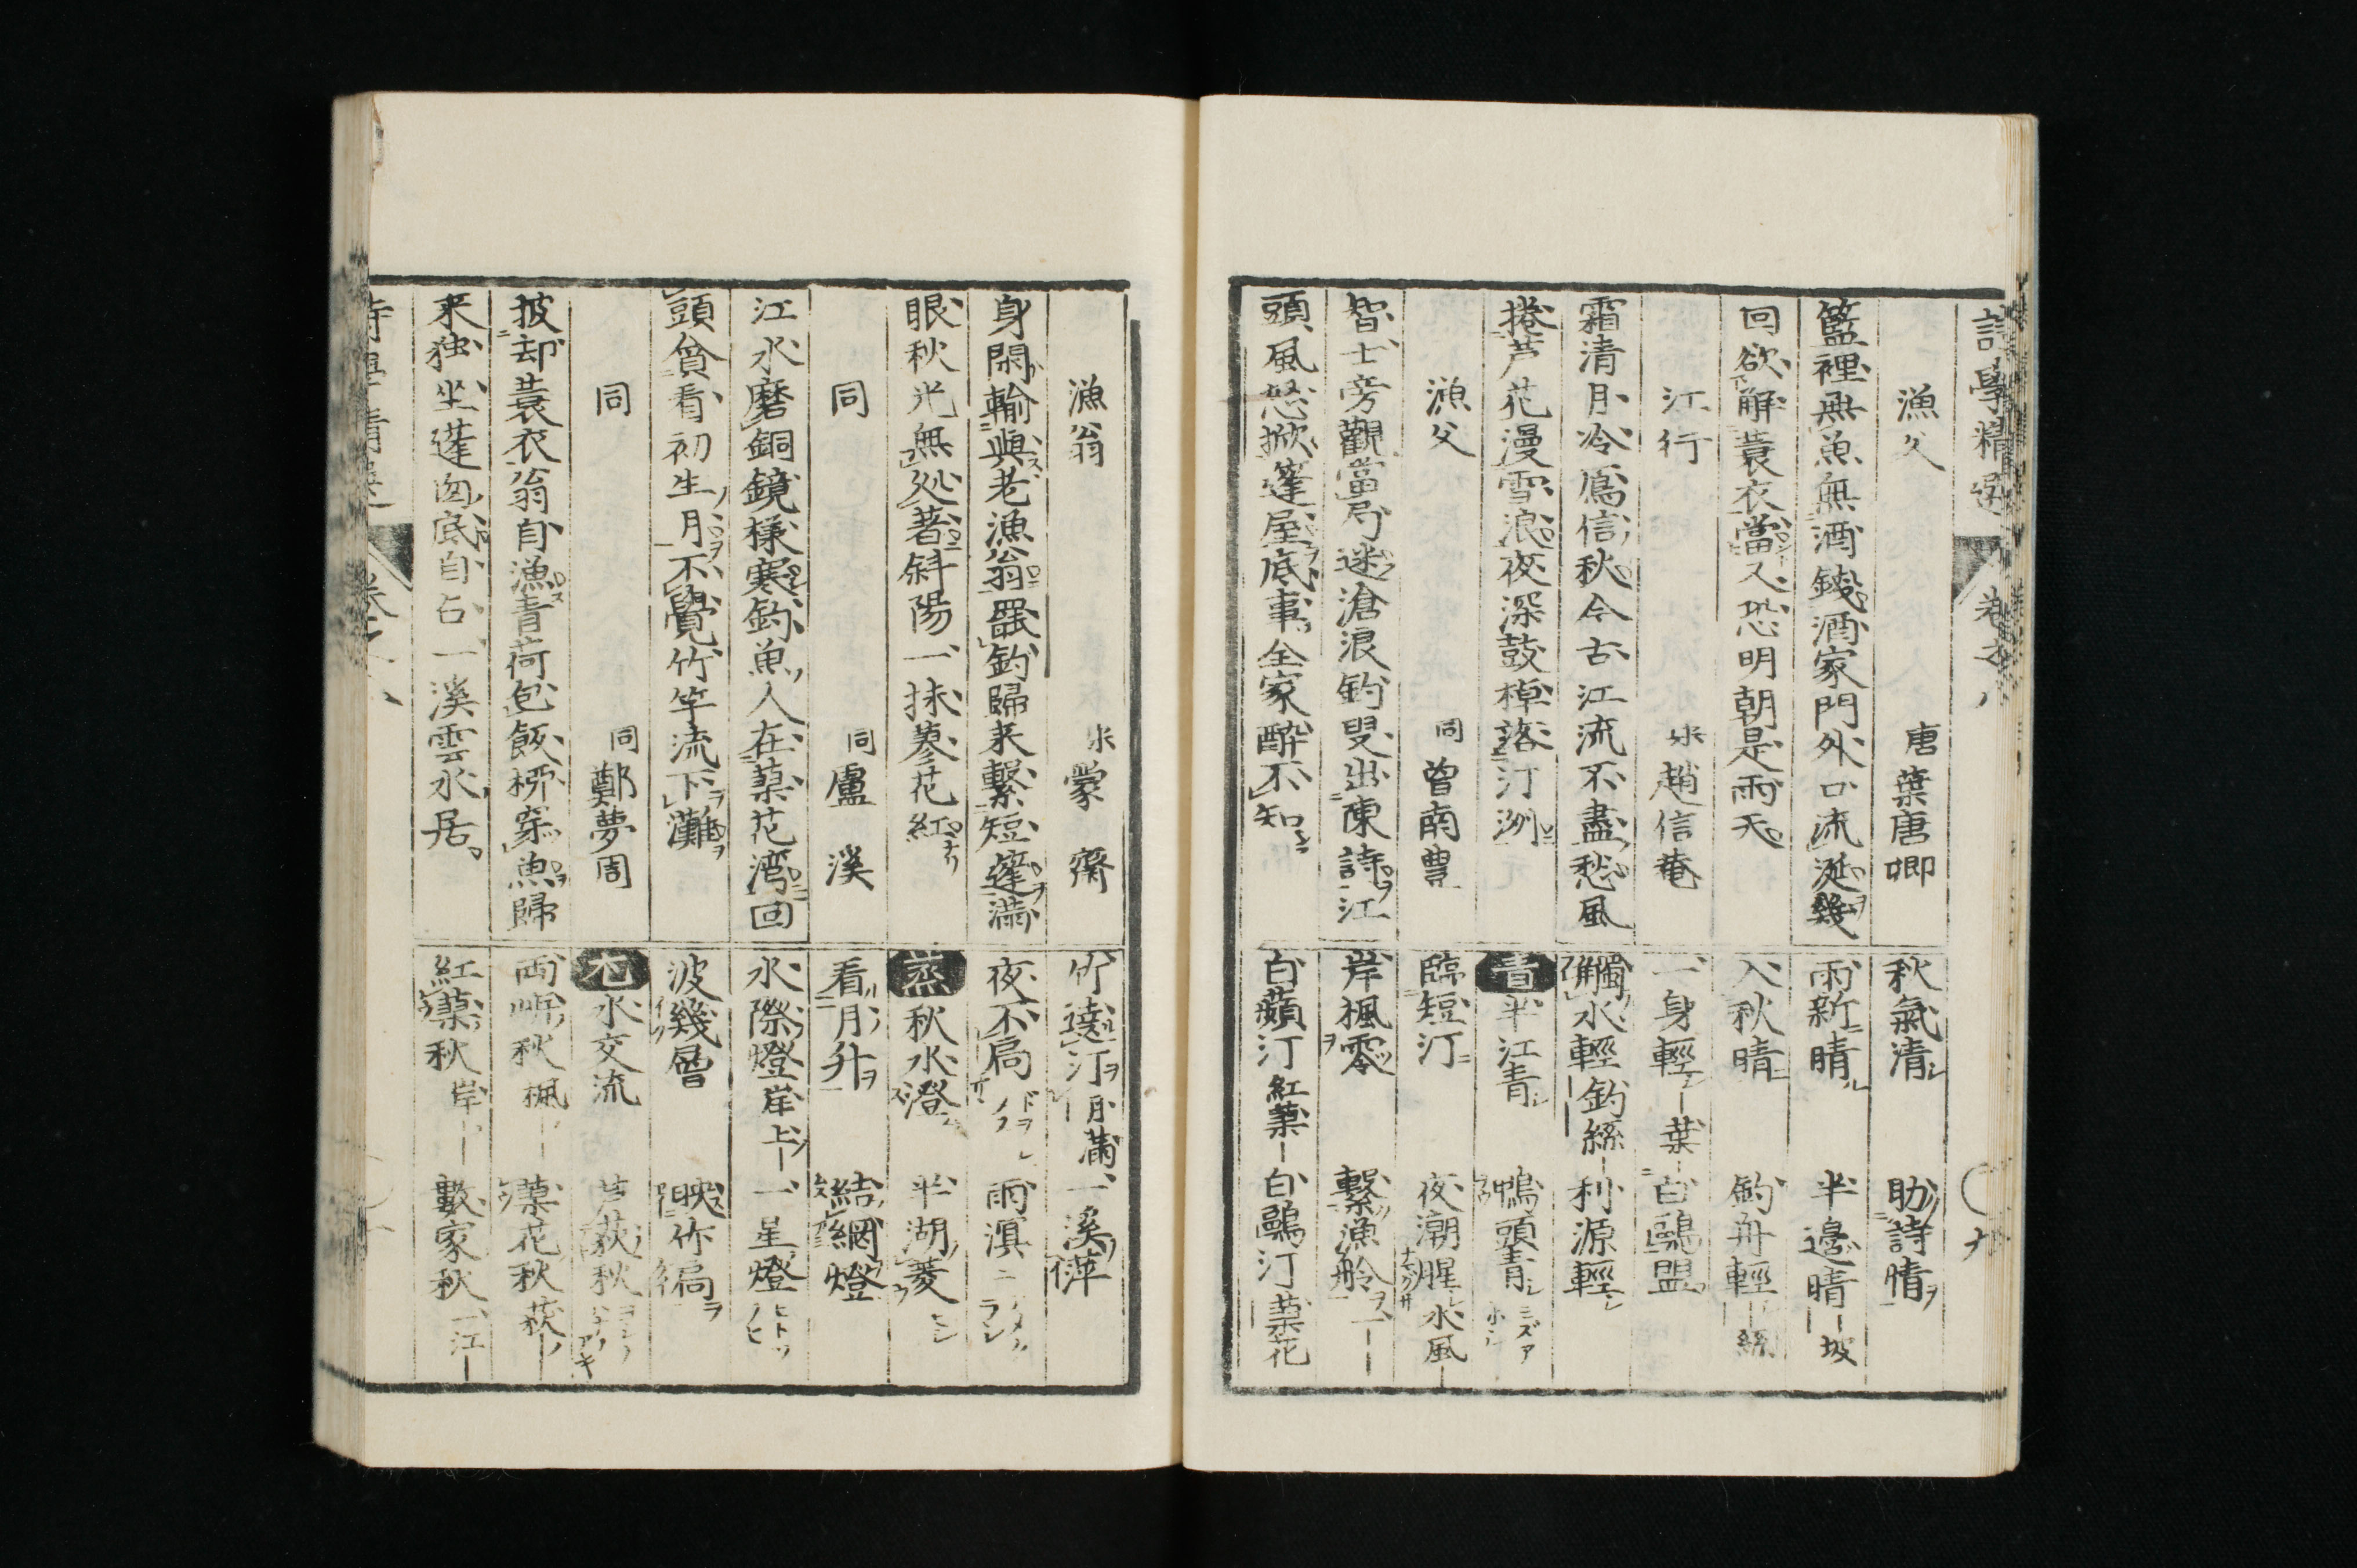 詩學精選 卷之八
漁父 唐 葉唐卿
籃裡無魚無酒錢酒家門外口流涎幾
回欲解蓑衣當又恐明朝是雨天
江行 宋 趙信菴
霜清月冷鴈信秋今古江流不盡愁風
捲芦花漫雪浪夜深鼓棹落汀洲
漁父 同 曾南豊
智士旁觀當局迷滄浪釣叟出陳詩江
頭風怒掀篷屋底事全家酔不知
秋氣清 助詩情
雨新晴 半邉晴 坡
入秋晴 釣舟輕 絲
一身輕 葉 白鷗盟
觸水輕 釣絲 利源輕
青 半江青 鴨頭青 ミズア
臨短汀 夜潮腥 水風
岸楓零 繫漁舲
白蘋汀 紅葉 白鷗汀 葉花
漁翁 宋 蒙齋
身閑輸與老漁翁罷釣歸来繫短篷滿
眼秋光無処著斜陽一抹蓼花紅
同 同 盧溪
江水磨銅鏡樣寒釣魚人在葉花湾回
頭貪看初生月不覺竹竿流下灘
同 同 鄭夢周
披却蓑衣翁自漁青荷包飯柳穿魚歸
来独坐蓬囱底自占一溪雲水居
竹遶汀 月 蒲 一溪萍
夜不扃 雨溟
蒸 秋水澄 半湖菱
看月升 結網燈
水際燈 岸上 一星燈 ヒトツノヒ
波幾層 映作
尤 水交流 芦荻秋
両岸秋 楓 葉花秋 荻
紅葉秋 岸 數家秋 一江